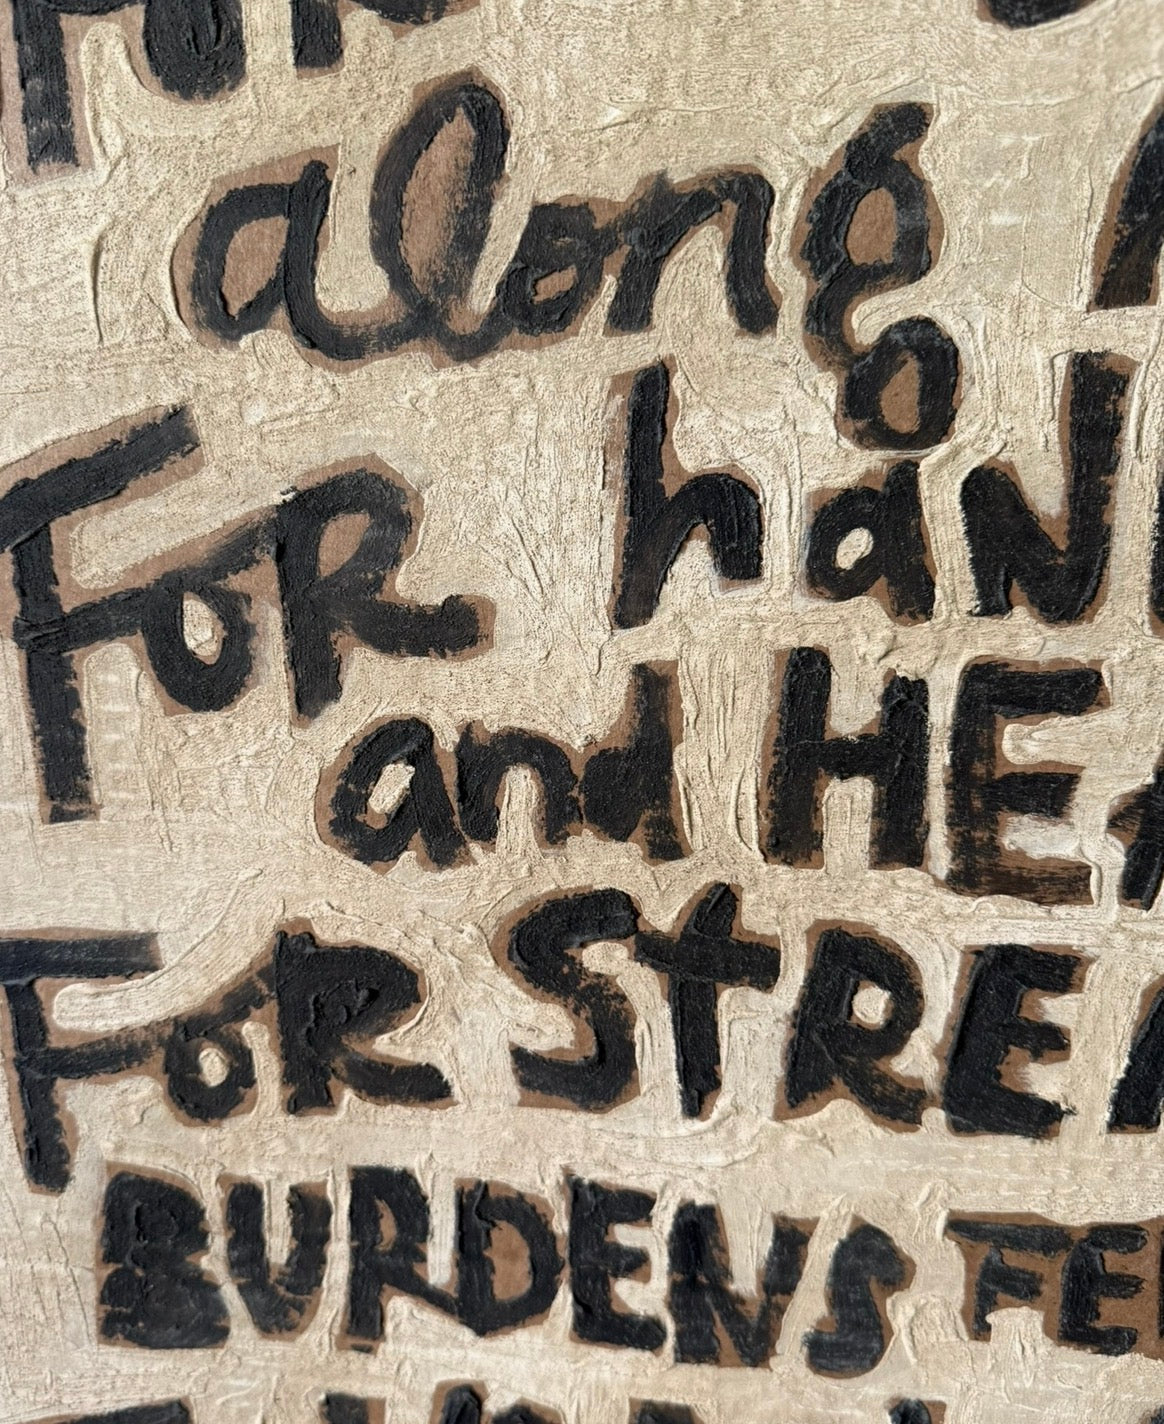 FOR
along
FOR haN
and HE
FOR STRE
BURDENS FE